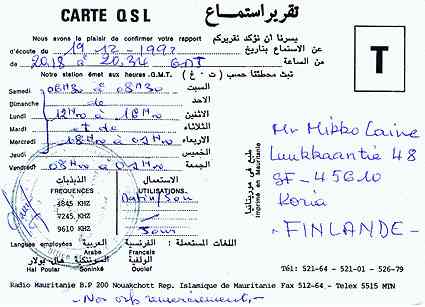 CARTE QSL تقرير استماع
Nous avons le plaisir de confirmer votre rapport يسرنا أن نؤكد تقريركم
d'écoute du 19.12-1992 عن الاستماع بتاريخ
de 2018 à 2034 GMT من الساعة
Notre station émet aux heures G.M.T. تبث محطتنا حسب (ت·غ)
Samedi 06H30 à 08H30 السبت
Dimanche de الاحد
Lundi 12H00 à 16H00 الاثنين
Mardi et de الثلاثاء
Mercredi 18H00 à 01H00 الاربعاء
Jeudi الخميس
Vendredi 08H00 à 01H00 الجمعة
الذبذبات الاستعمال
FREQUENCES UTILISATIONS
4845 KHZ
7245 KHZ
9610 KHZ Jour
Langues employées : Arabe العربية Française الفرنسية اللغات المستعملة :
Hal Poular هال بولار Soninké سوننكي Ouolof
T
Mr Mikko Laine
Luukkaantie 48
SF-45610
Koria
-FINLANDE-
طبع في موريتانيا
Imprimé en Mauritanie
Tél: 521-64 - 521-01 - 526-79
Radio Mauritanie B.P 200 Nouakchott Rep. Islamique de Mauritanie Fax 512-64 - Telex 5515 MTN